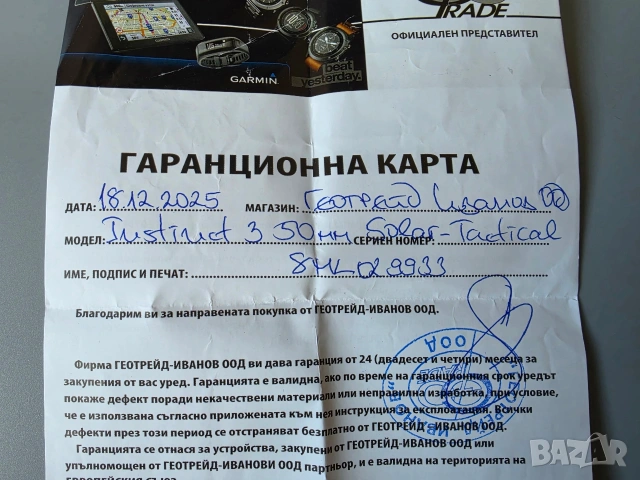 TRADE
ОФИЦИАЛЕН ПРЕДСТАВИТЕЛ
GARMIN
beat yesterday.
ГАРАНЦИОННА КАРТА
ДАТА: 18.12.2025 МАГАЗИН: ГЕОТРЕЙД Иванов ООД
МОДЕЛ: Instinct 3 50мм Solar-Tactical СЕРИЕН НОМЕР:
ИМЕ, ПОДПИС И ПЕЧАТ: 8HL029933
Благодарим ви за направената покупка от ГЕОТРЕЙД-ИВАНОВ ООД.
Фирма ГЕОТРЕЙД-ИВАНОВ ООД ви дава гаранция от 24 (двадесет и четири) месеца за
закупения от вас уред. Гаранцията е валидна, ако по време на гаранционния срок уредът
покаже дефект поради некачествени материали или неправилна изработка, при условие,
че е използвана съгласно приложената към нея инструкция за експлоатация. Всички
дефекти през този период се отстраняват безплатно от ГЕОТРЕЙД - ИВАНОВ ООД.
Гаранцията се отнася за устройства, закупени от ГЕОТРЕЙД-ИВАНОВ ООД или
упълномощен от ГЕОТРЕЙД-ИВАНОВИ ООД партньор, и е валидна на територията на
ЕВРОПЕЙСКИЯ СЪЮЗ
"ГЕОТРЕЙД ИВАНОВ" ООД
BAZAR